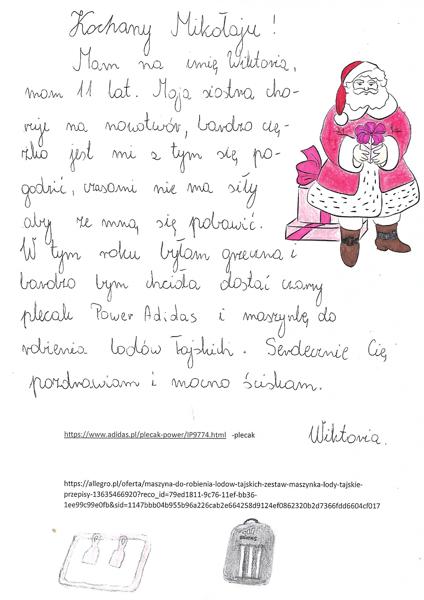 Kochany Mikołaju!
Mam na imię Wiktoria,
mam 11 lat. Moja siostra cho-
ruje na nowotwór, bardzo cię-
żko jest mi z tym się po-
godzić, czasami nie ma siły
aby ze mną się pobawić.
W tym roku byłam grzeczna i
bardzo bym chciała dostać czarny
plecak Power Adidas i maszynkę do
robienia lodów Tajskich. Serdecznie Cię
pozdrawiam i mocno ściskam.
https://www.adidas.pl/plecak-power/IP9774.html -plecak
Wiktoria.
https://allegro.pl/oferta/maszyna-do-robienia-lodow-tajskich-zestaw-maszynka-lody-tajskie-
przepisy-13635466920?reco_id=79ed1811-9c76-11ef-bb36-
1ee99c99e0fb&sid=1147bbb04b955b96a226cab2e664258d9124ef0862320b2d7366fdd6604cf017